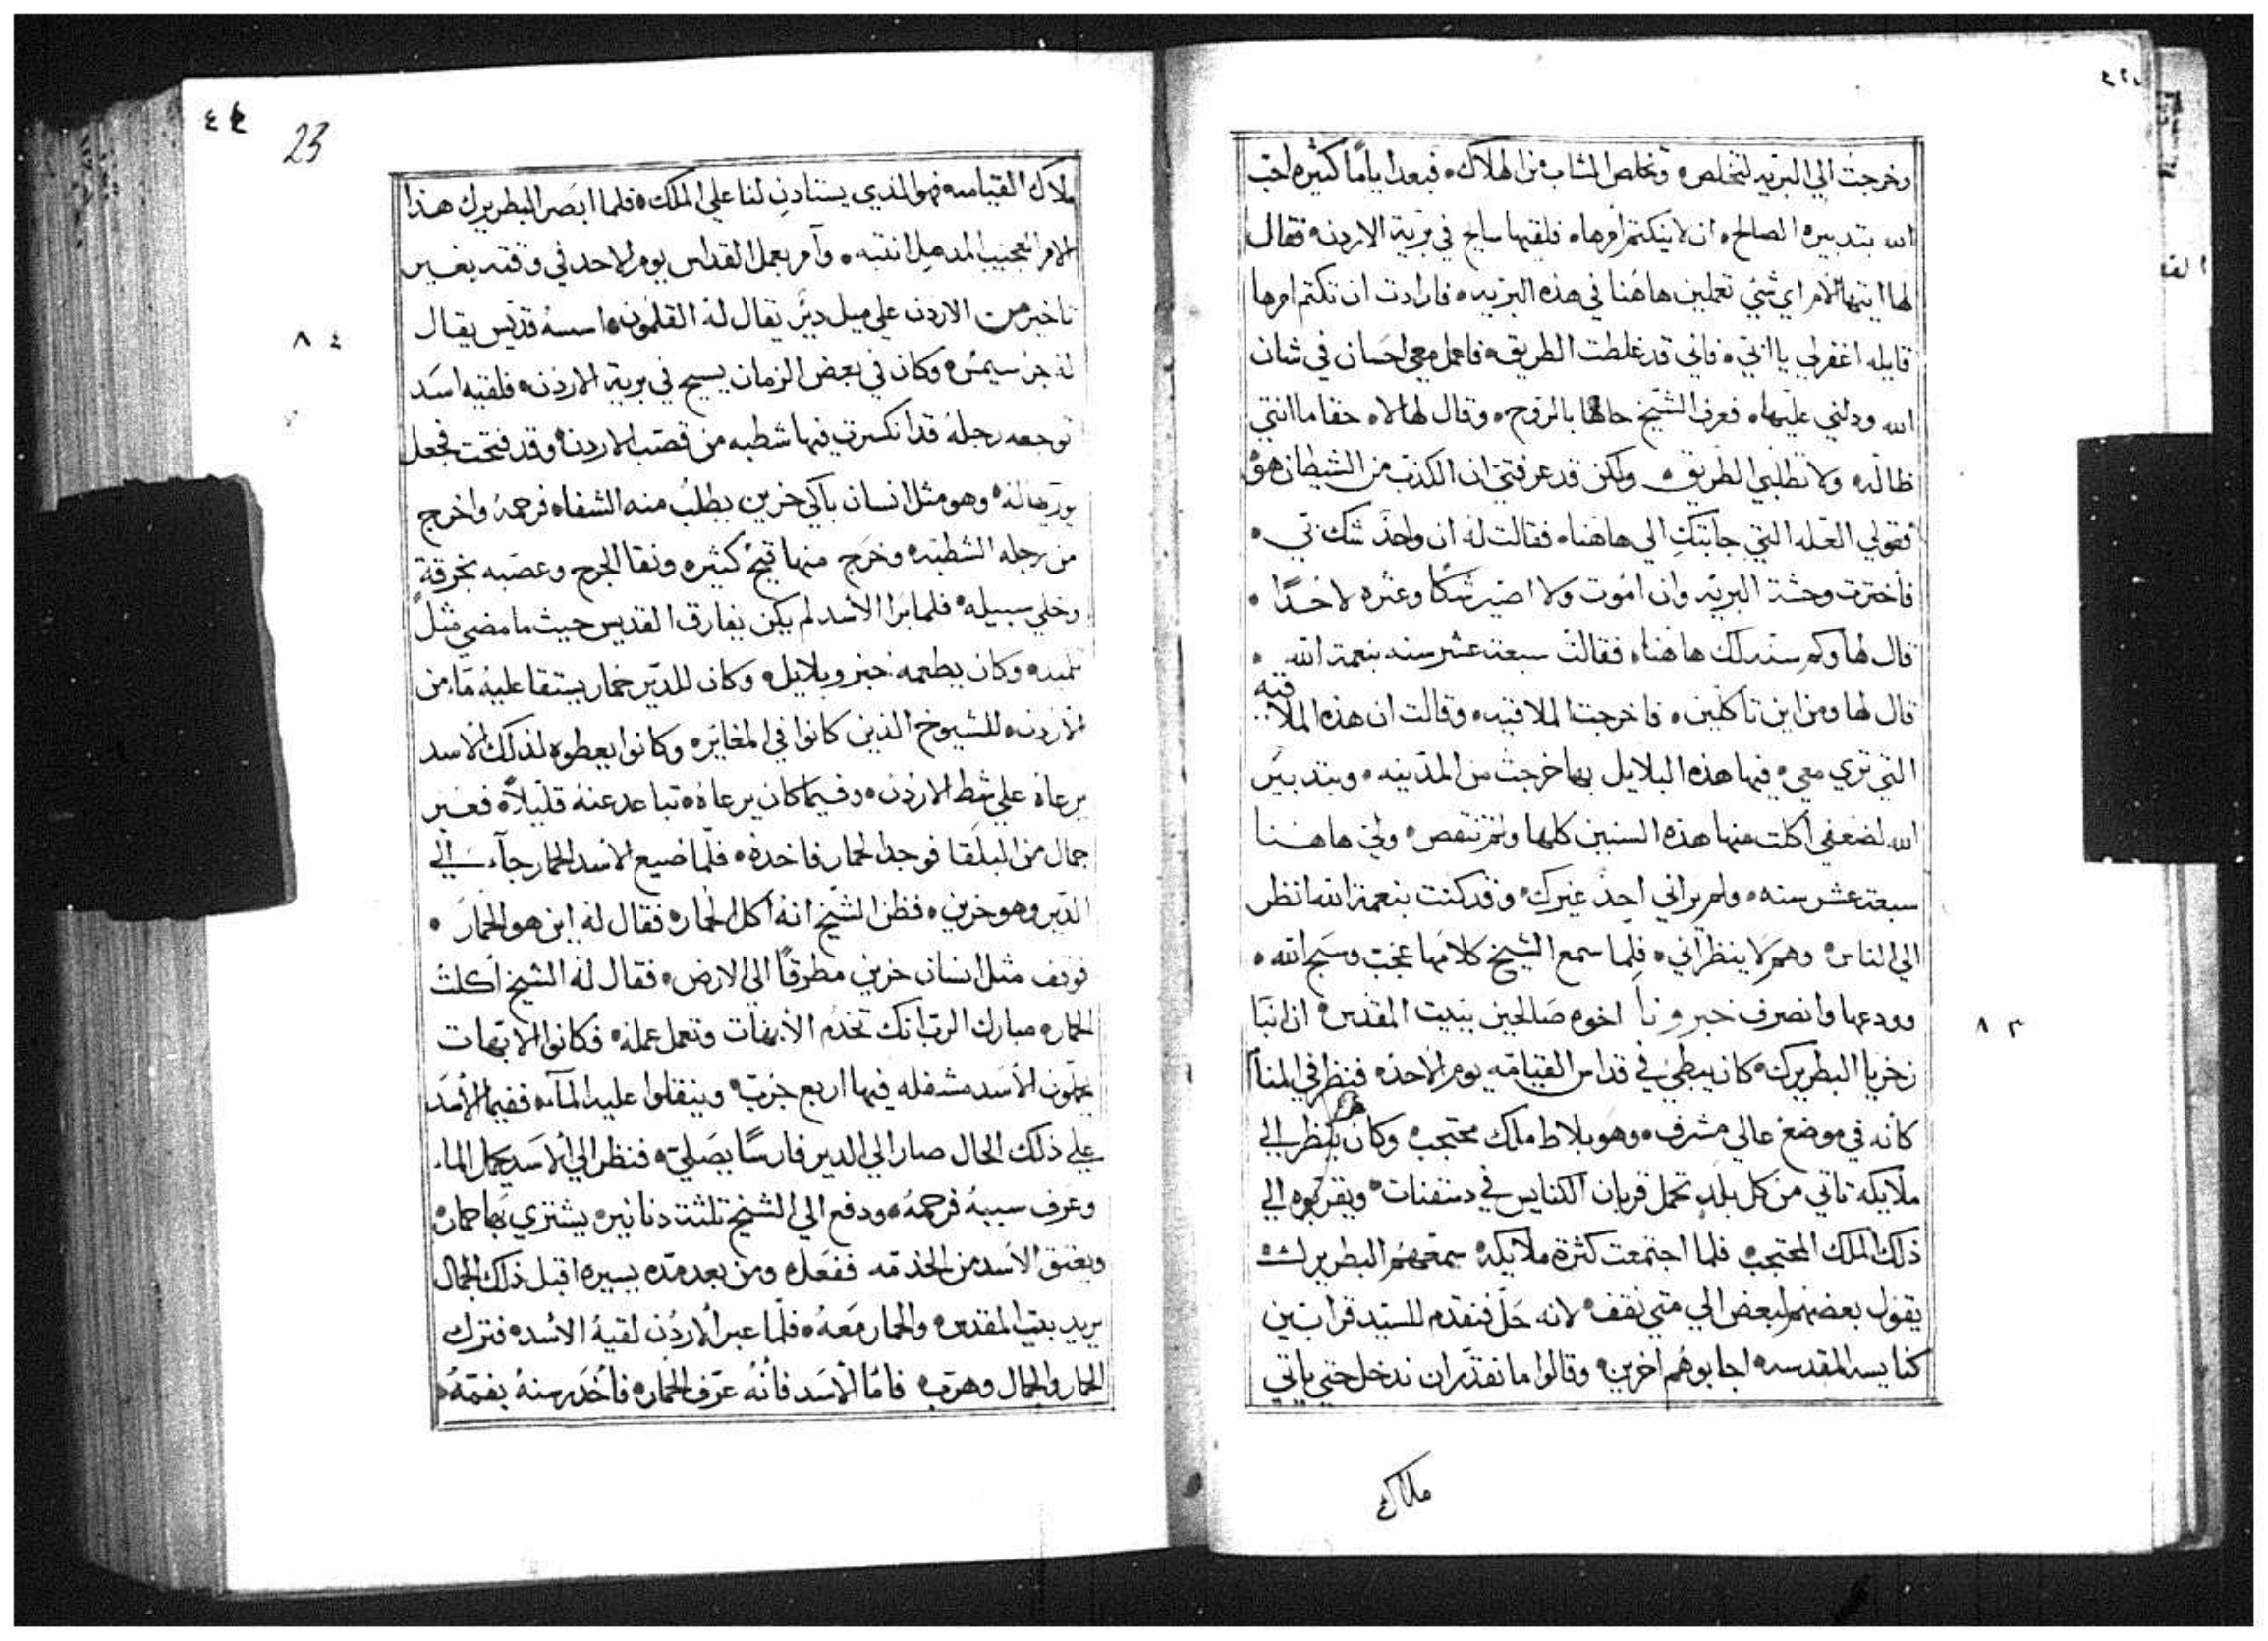 وخرجت الي البريه لتخلص وتخلص الشاب من الهلاك فبعد اياما كثيره احب
الله بتدبيره الصالح ان لا ينكتم امرها فلقيها سايح في برية الاردن فقال
لها ايتها الام اي شي تعملين هاهنا في هذه البريه فارادت ان تكتم امرها
قايله اغفرلي يا ابتي فاني قد غلطت الطريق فاعمل معي احسان في شان
الله ودلني عليها فعرف الشيخ حالها بالروح وقال لها لا حقا ما انتي
ظاله ولا تطلبي الطريق ولكن قد عرفتي ان الكذب من الشيطان هو
فقولي العله التي جابتك الي هاهنا فقالت له ان واحد شك بي
فاخترت وحشة البريه وان اموت ولا اصير شكا وعثره لاحدا
قال لها وكم سنه لك هاهنا فقالت سبعة عشر سنه بنعمة الله
قال لها ومن اين تاكلين فاخرجت الملاقيه وقالت ان هذه الملاقيه
التي تري معي فيها هذه البلابل بها خرجت من المدينه وبتدبير
الله لضعفي اكلت منها هذه السنين كلها ولم تنقص ولي هاهنا
سبعة عشر سنه ولم يراني احد غيرك وقد كنت بنعمة الله انظر
الي الناس وهم لا ينظراني فلما سمع الشيخ كلامها عجب وسبح الله
وودعها وانصرف خبرونا اخوه صالحين ببيت المقدس ان انبا
زخريا البطريرك كان يبطي في قداس القيامه يوم الاحد فنظر في المنا
كانه في موضع عالي مشرف وهو بلاط ملك محتجب وكان ينظر الي
ملايكه تاتي من كل بلد تحمل قربان الكنايس في دستفنات ويقربوه الي
ذلك الملك المحتجب فلما اجتمعت كثرة ملايكه سمعهم البطريرك
يقول بعضهم لبعض الي متي نقف لانه حل فنقدم للسيد قرابين
كنايسه المقدسه اجابوهم اخرين وقالوا ما نقدر ان ندخل حتي ياتي
ملاك
٨٣
٤٤
23
ملاك القيامه فهو الذي يستادن لنا علي الملك فلما ابصر البطريرك هذا
الامر العجيب المدهل انتبه وآمر بعمل القداس يوم الاحد في وقته بغير
تاخير من الاردن علي ميل دير يقال له القلمون اسسه قديس يقال
له جرسيمس وكان في بعض الزمان يسيح في برية الاردن فلقيه اسد
توجعه رجله قد انكسرت فيها شطبه من قصب الاردن وقد فتحت فجعل
يوريها له وهو مثل انسان باكي حزين يطلب منه الشفاه فرحمه واخرج
من رجله الشطبه وخرج منها قيح كثيره ونقا الجرح وعصبه بخرقة
وخلي سبيله فلما برا الاسد لم يكن يفارق القديس حيث ما مضي مثل
تلميده وكان يطعمه خبز وبلابل وكان للدير حمار يستقا عليه ماء من
الاردن للشيوخ الذين كانوا في المغاير وكانوا يعطوه لذلك الاسد
يرعاه علي شط الاردن وفيما كان يرعاه تباعد عنه قليلاً فعبر
جمال من البلقا فوجد الحمار فاخده فلما ضيع الاسد الحمار جآء الي
الدير وهو حزين فظن الشيخ انه اكل الحمار فقال له اين هو الحمار
فوقف مثل انسان حزين مطرقاً الي الارض فقال له الشيخ اكلت
الحمار مبارك الرب انك تخدم الابهات وتعمل عمله فكانوا الابهات
يحملون الاسد مشغله فيها اربع جرب وينقلوا عليه المآء ففيما الاسد
علي ذلك الحال صار الي الدير فارسًا يصلي فنظر الي الاسد يحمل الماء
وعرف سببه فرحمه ودفع الي الشيخ تلثة دنانير يشتري بها حمار
ويعتق الاسد من الخدمه ففعل ومن بعد مده يسيره اقبل ذلك الجمال
يريد بيت المقدس والحمار معه فلما عبر الاردن لقيه الاسد فترك
الحمار والجمال وهرب فاما الاسد فانه عرف الحمار فاخد رسنه بفمه
٨٤